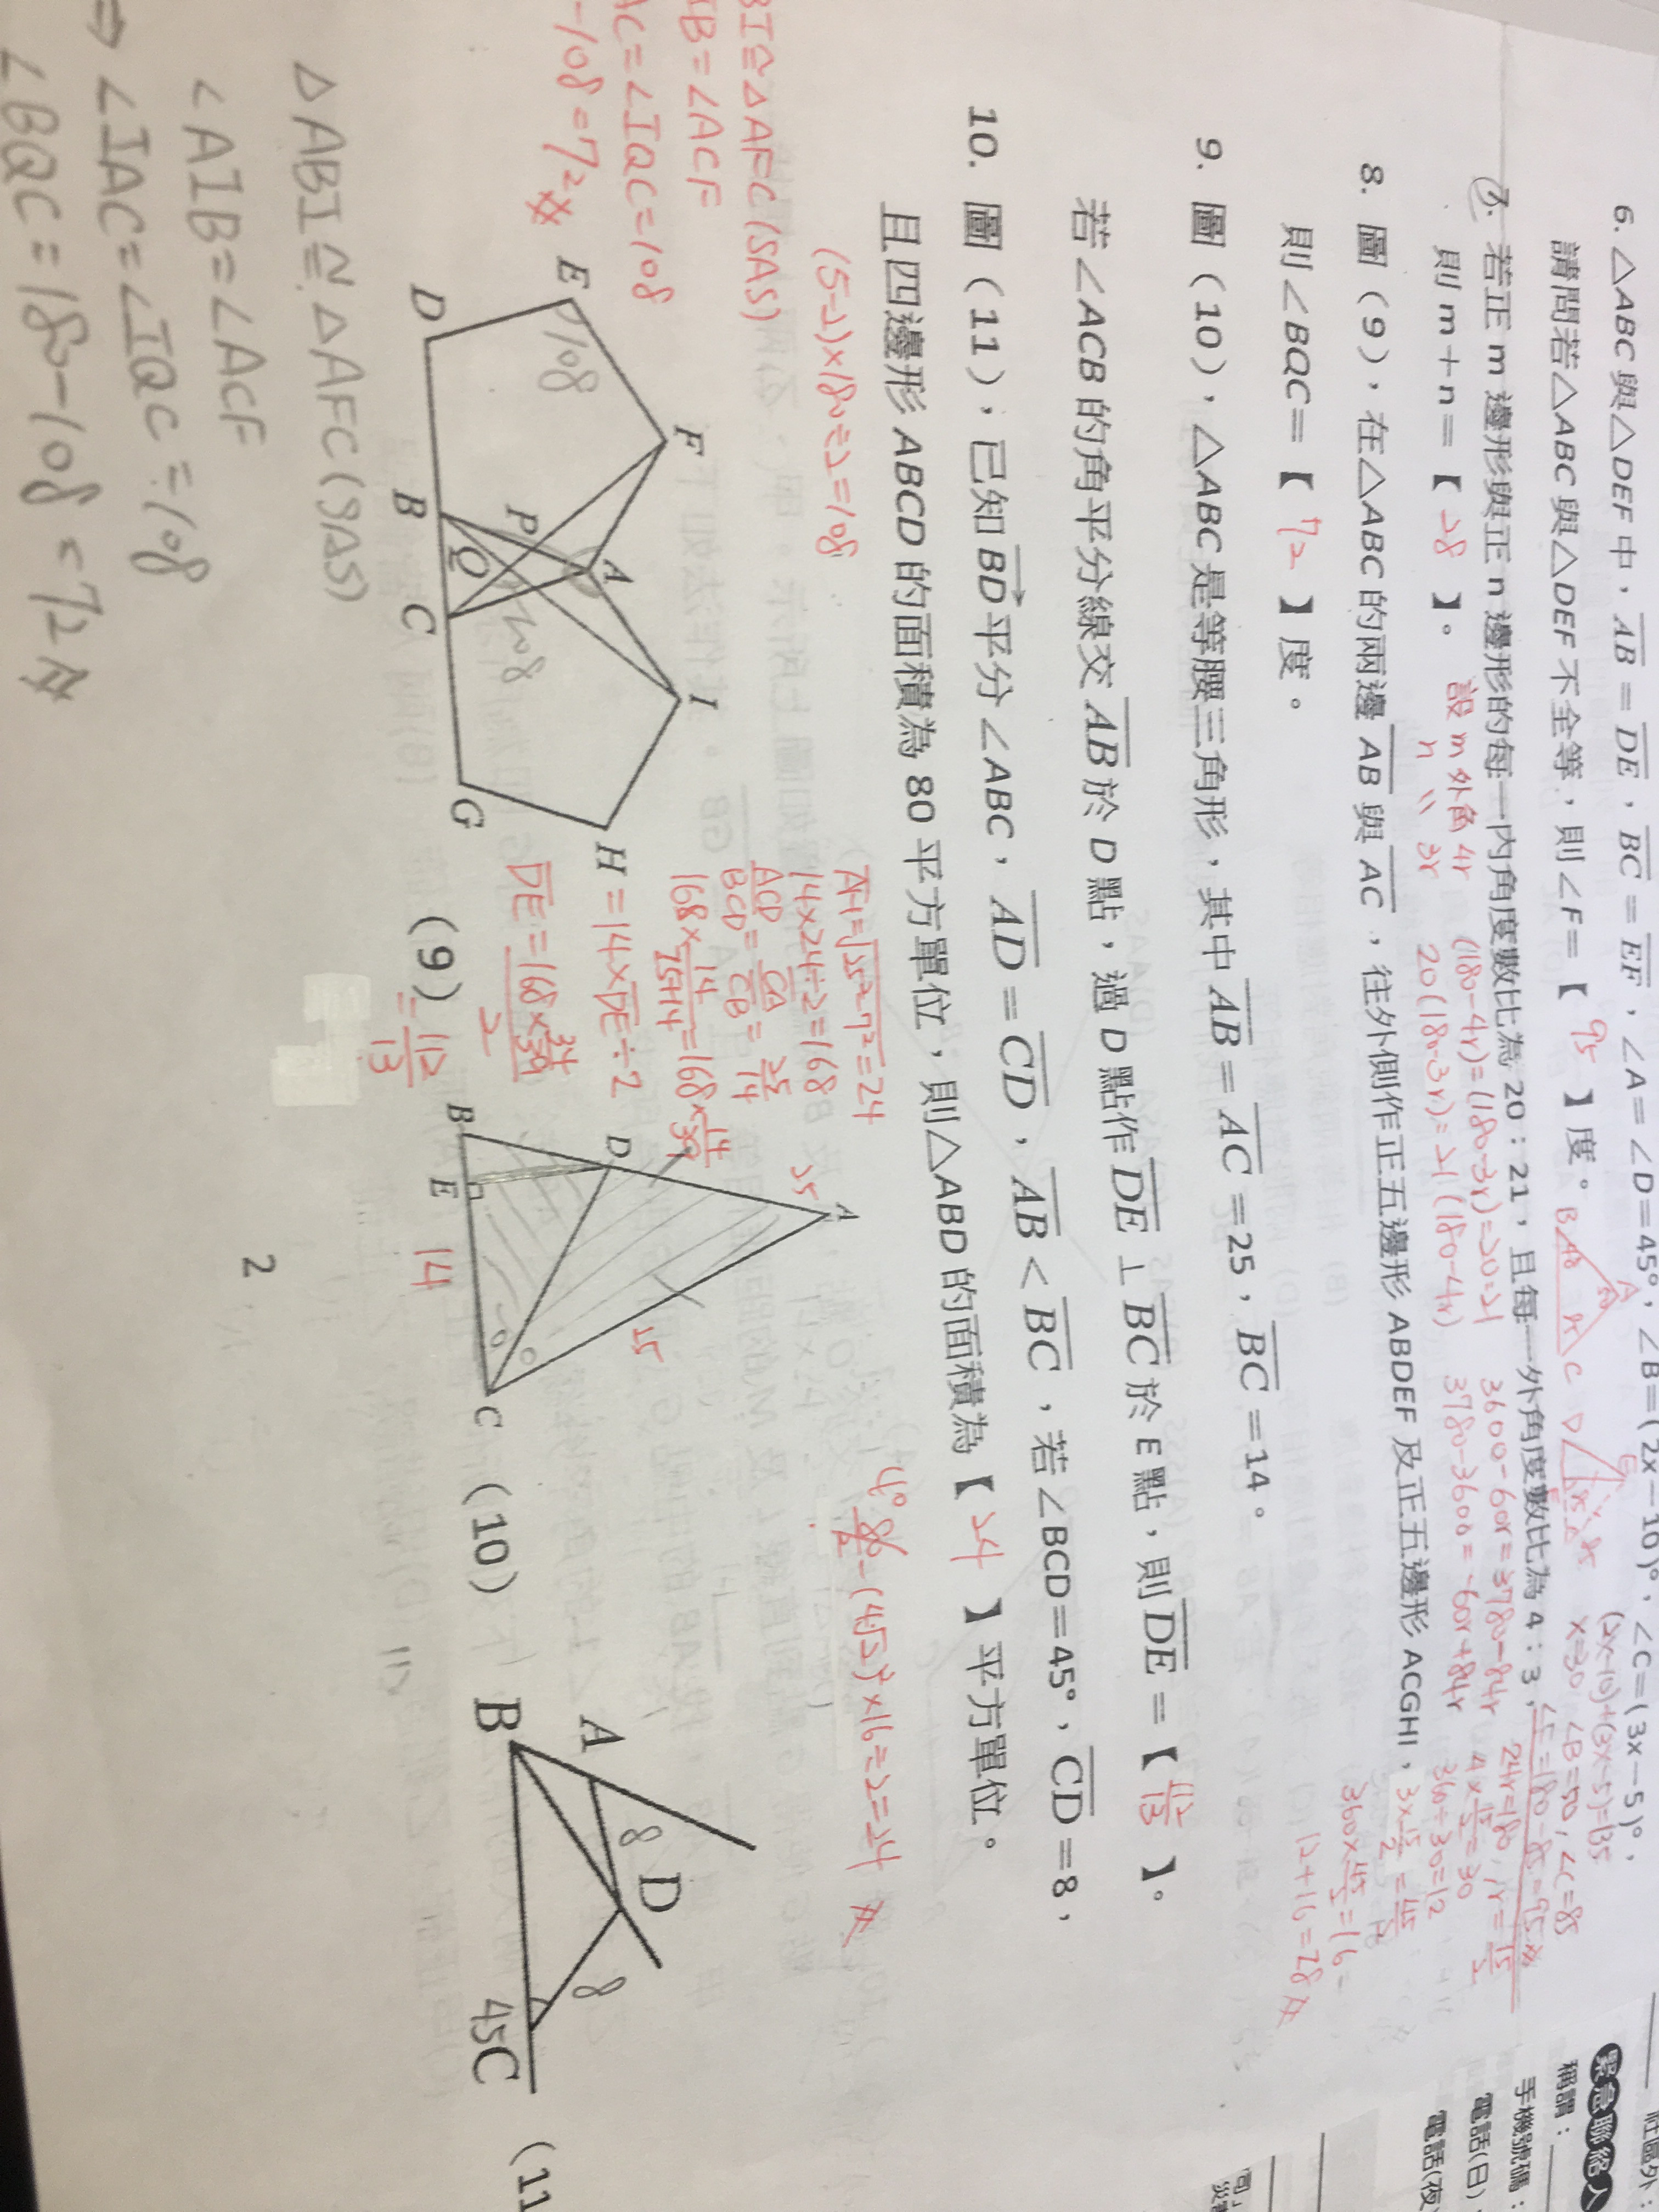 6. △ABC 與△DEF 中，AB＝DE，BC＝EF，∠A＝∠D＝45°，∠B＝(2x－10)°，∠C＝(3x－5)°，
請問若△ABC 與△DEF 不全等，則∠F＝【 95 】度。
(2x-10)+(3x-5)=135
x=30 ∠B=50, ∠C=85
∠F=180-85=95
7. 若正 m 邊形與正 n 邊形的每一內角度數比為 20：21，且每一外角度數比為 4：3，
則 m＋n＝【 28 】。
設 m 外角 4r
n 〃 3r
(180-4r)=(180-3r)=20=21
20(180-3r)=21(180-4r)
3600-60r=3780-84r
3780-3600=-60r+84r
24r=180, r=15/2
4×15/2=30
360÷30=12
3×15/2=45/2
360×45/2=16
12+16=28
8. 圖（9），在△ABC 的兩邊 AB 與 AC，往外側作正五邊形 ABDEF 及正五邊形 ACGHI，
則∠BQC＝【 72 】度。
9. 圖（10），△ABC 是等腰三角形，其中 AB＝AC＝25，BC＝14。
若∠ACB 的角平分線交 AB 於 D 點，過 D 點作 DE⊥BC 於 E 點，則 DE＝【 112/13 】。
10. 圖（11），已知 BD 平分∠ABC，AD＝CD，AB＜BC，若∠BCD＝45°，CD＝8，
且四邊形 ABCD 的面積為 80 平方單位，則△ABD 的面積為【 24 】平方單位。
(5-2)×180÷2=108
BI≅△AFC(SAS)
B=∠ACF
AC=∠IQC=108
-108=72
14×24÷2=168
ACD/BCD=CA/CB=25/14
168×14/25+14=168×14/39
=14×DE÷2
=112/13
80/2-(4√2)²×16=2=24
E 108 F P A I B Q C D G H 108
(9)
A 25 25 D B E 14 C
(10)
A 8 D 8 B 45 C
(11
△ABI≅△AFC(SAS)
∠AIB=∠ACF
⇒ ∠IAC=∠IQC=108
∠BQC=180-108=72
2
緊急聯絡人
稱謂：
手機號碼：
電話(日)
電話(夜)
社區外：